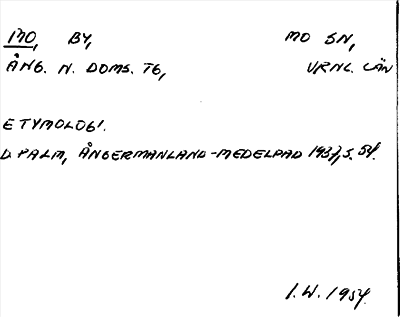 MO, BY, MO SN,
ÅNG. N. DOMS. TG, VRNL. LÄN
ETYMOLOGI.
D. PALM, ÅNGERMANLAND-MEDELPAD 1937, S. 54.
I.W. 1954.